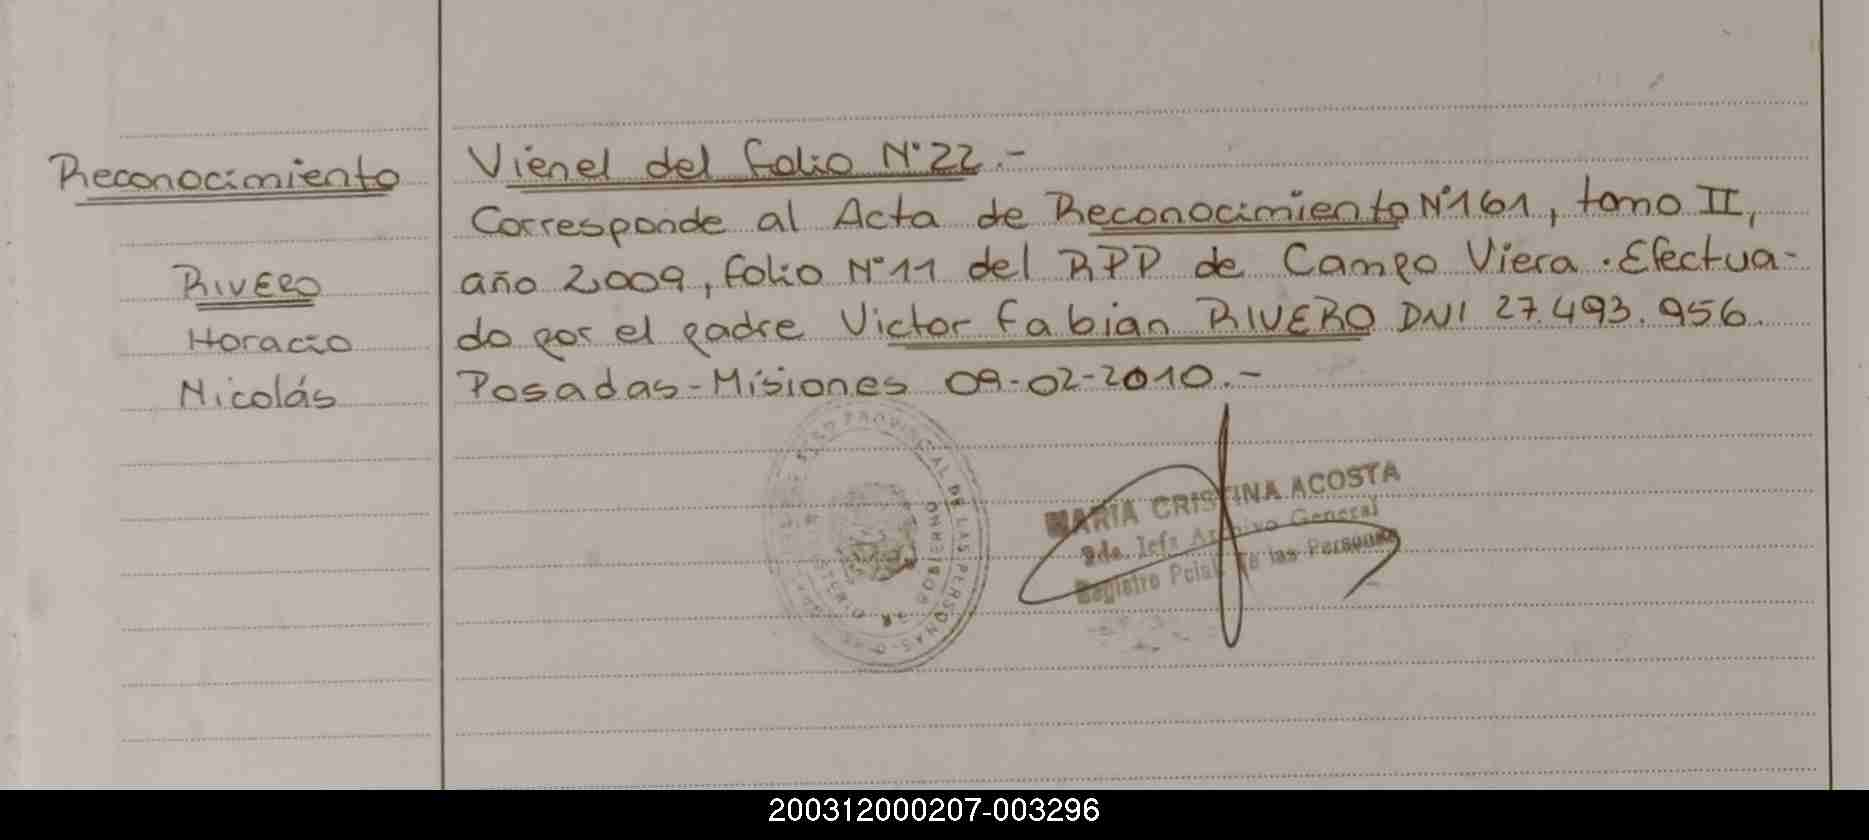 Reconocimiento
RIVERO
Horacio
Nicolás
Vienel del folio N°22.-
Corresponde al Acta de Reconocimiento N°161, tomo II,
año 2009, folio N°11 del RPP de Campo Viera. Efectua-
do por el padre Victor Fabian RIVERO DNI 27.493.956.
Posadas-Misiones 09-02-2010.-
PROVINCIAL DE LAS PERSONAS
GOBIERNO
MARIA CRISTINA ACOSTA
2da. Jefa Archivo General
Registro Pcial. de las Personas
200312000207-003296